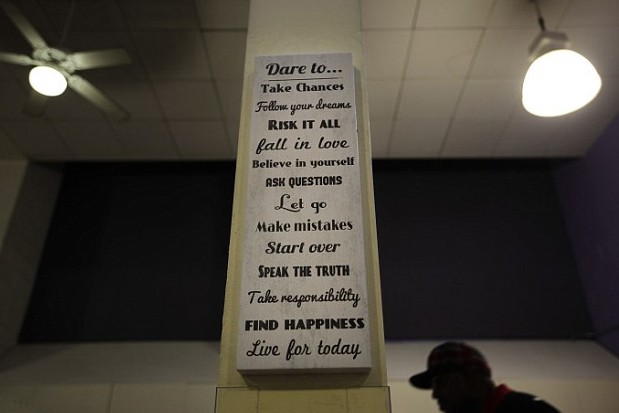 Dare to...
Take Chances
Follow your dreams
RISK IT ALL
fall in love
Believe in yourself
ASK QUESTIONS
Let go
Make mistakes
Start over
SPEAK THE TRUTH
Take responsibility
FIND HAPPINESS
Live for today